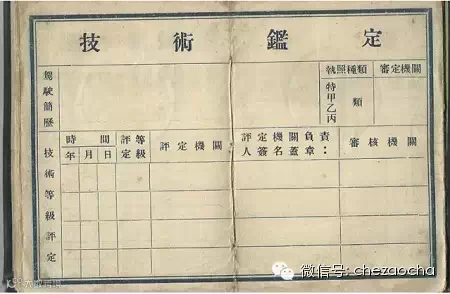 技術鑑定
駕駛簡歷
執照種類
審定機關
特甲乙丙
類
技術等級評定
時間
年月日
評定等級
評定機關
評定機關負責
人簽名蓋章：
審核機關
微信号: chezaocha